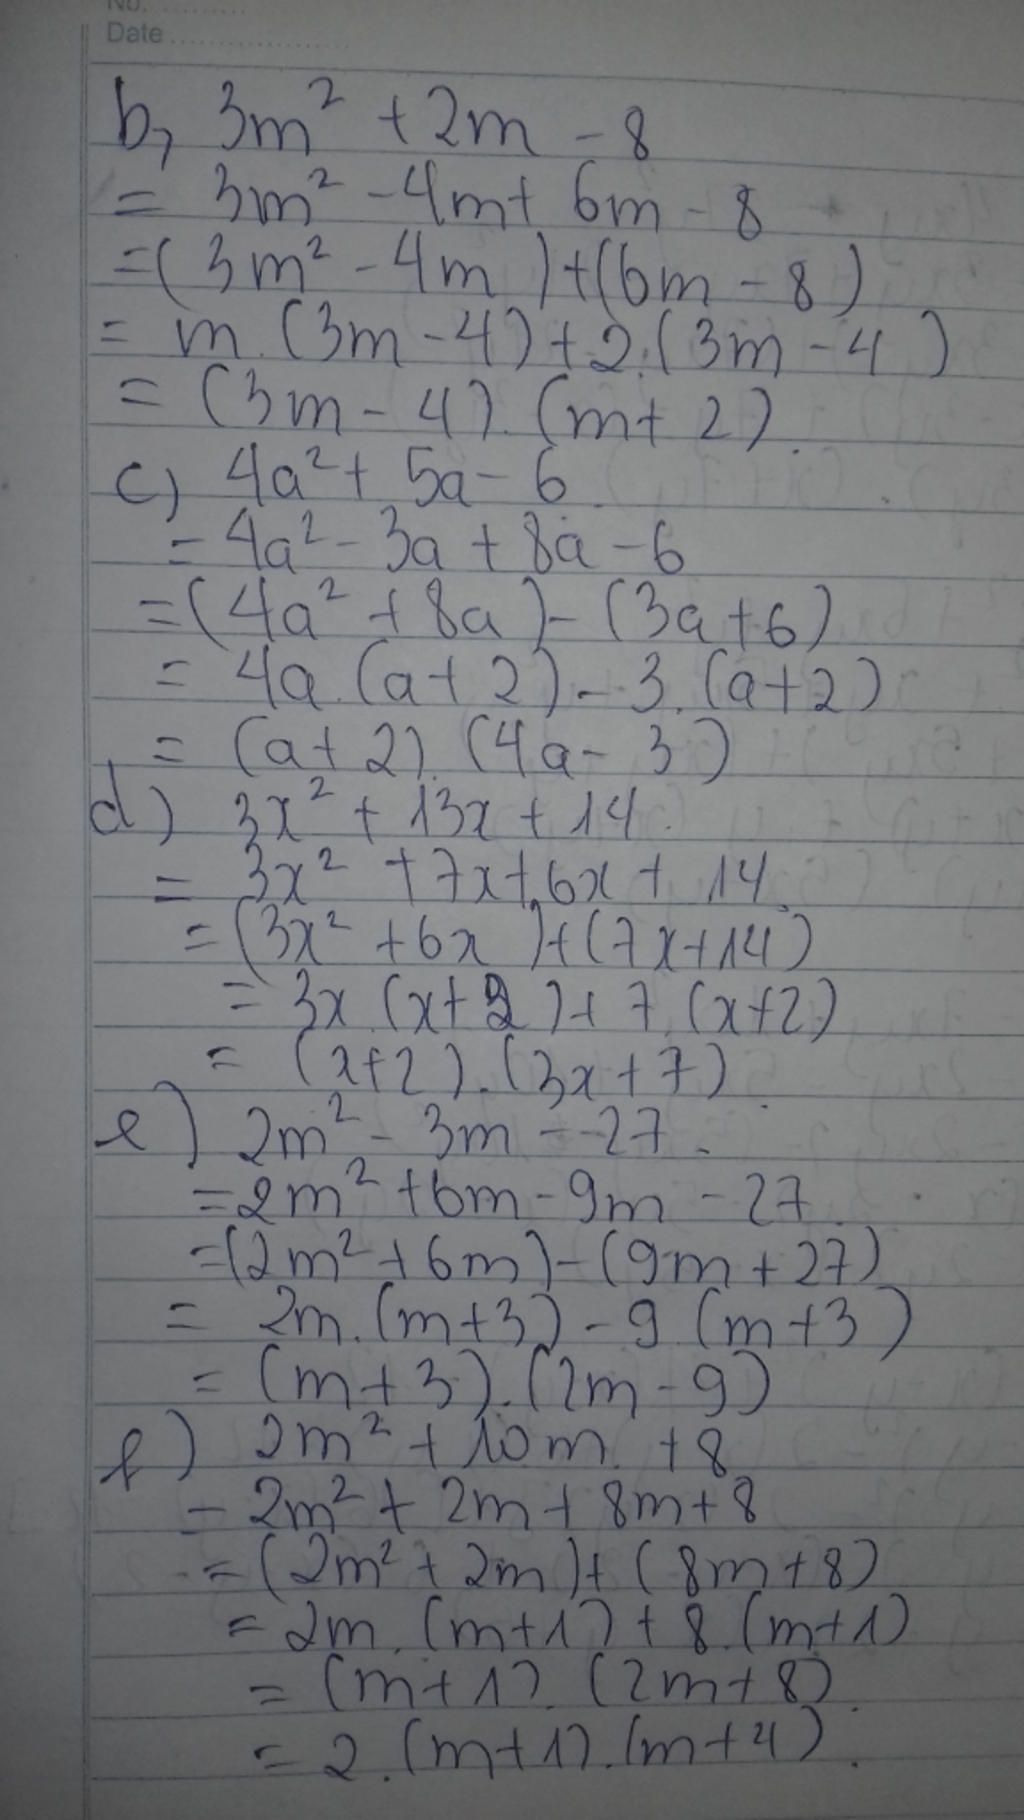 No. ..........
Date ....................
b, 3m² + 2m - 8
= 3m² - 4m + 6m - 8
= (3m² - 4m) + (6m - 8)
= m.(3m - 4) + 2.(3m - 4)
= (3m - 4).(m + 2).
c) 4a² + 5a - 6
= 4a² - 3a + 8a - 6
= (4a² + 8a) - (3a + 6)
= 4a.(a + 2) - 3.(a + 2)
= (a + 2).(4a - 3)
d) 3x² + 13x + 14.
= 3x² + 7x + 6x + 14.
= (3x² + 6x) + (7x + 14)
= 3x.(x + 2) + 7.(x + 2)
= (x + 2).(3x + 7).
e) 2m² - 3m - 27.
= 2m² + 6m - 9m - 27
= (2m² + 6m) - (9m + 27)
= 2m.(m + 3) - 9.(m + 3)
= (m + 3).(2m - 9)
f) 2m² + 10m + 8
= 2m² + 2m + 8m + 8
= (2m² + 2m) + (8m + 8)
= 2m.(m + 1) + 8.(m + 1)
= (m + 1).(2m + 8).
= 2.(m + 1).(m + 4).